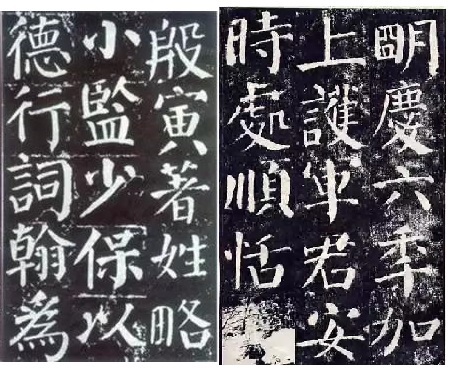 明慶六年加
上護軍君安
時處順恬
殷寅著姓略
小監少保以
德行詞翰為